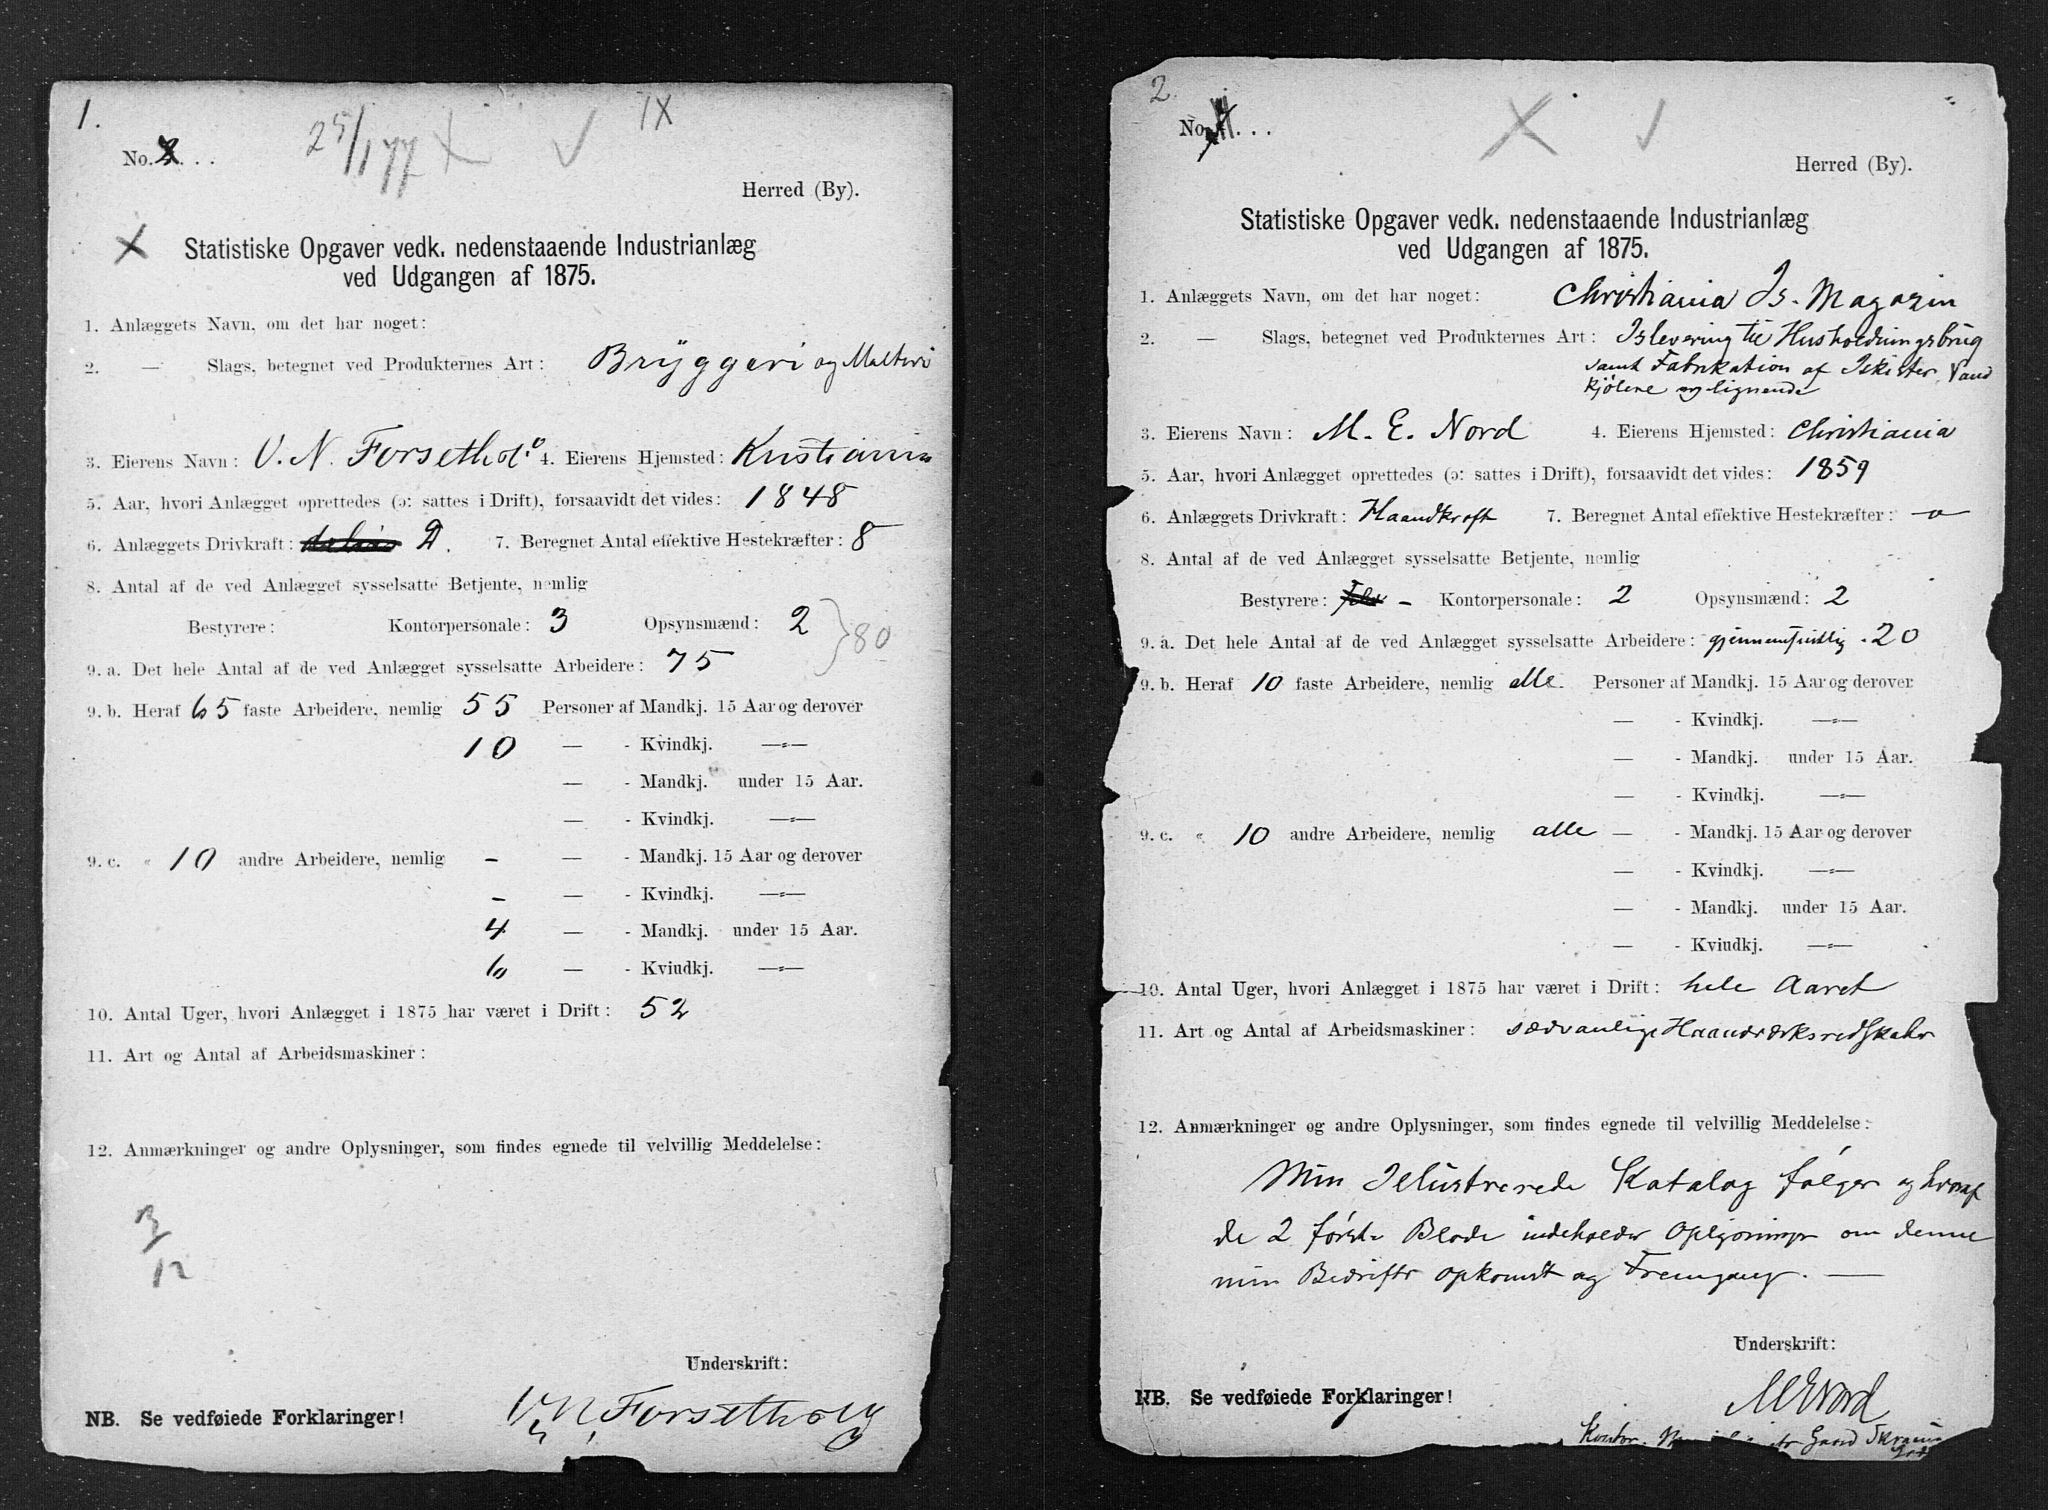 1.
25/1 77
IX
No. . . .
Herred (By).
Statistiske Opgaver vedk. nedenstaaende Industrianlæg
ved Udgangen af 1875.
1. Anlæggets Navn, om det har noget:
2. — Slags, betegnet ved Produkternes Art: Bryggeri og Malteri
3. Eierens Navn: V. N. Forseth & Co 4. Eierens Hjemsted: Kristiania
5. Aar, hvori Anlægget oprettedes (ɔ: sattes i Drift), forsaavidt det vides: 1848
6. Anlæggets Drivkraft: D. 7. Beregnet Antal effektive Hestekræfter: 8
8. Antal af de ved Anlægget sysselsatte Betjente, nemlig
Bestyrere: Kontorpersonale: 3 Opsynsmænd: 2
80
9. a. Det hele Antal af de ved Anlægget sysselsatte Arbeidere: 75
9. b. Heraf 65 faste Arbeidere, nemlig 55 Personer af Mandkj. 15 Aar og derover
10 — - Kvindkj. —"—
— - Mandkj. under 15 Aar.
— - Kvindkj. —"—
9. c. " 10 andre Arbeidere, nemlig - — - Mandkj. 15 Aar og derover
- — - Kvindkj. —"—
4 — - Mandkj. under 15 Aar.
6 — - Kviudkj. —"—
10. Antal Uger, hvori Anlægget i 1875 har været i Drift: 52
11. Art og Antal af Arbeidsmaskiner:
12. Anmærkninger og andre Oplysninger, som findes egnede til velvillig Meddelelse:
12
Underskrift:
NB. Se vedføiede Forklaringer!
2.
No. . . .
Herred (By).
Statistiske Opgaver vedk. nedenstaaende Industrianlæg
ved Udgangen af 1875.
1. Anlæggets Navn, om det har noget: Christiania Is-Magazin
2. — Slags, betegnet ved Produkternes Art: Islevering til Husholdningsbrug
samt Fabrikation af Iskister, Vand
kjølere og lignende
3. Eierens Navn: M. E. Nord 4. Eierens Hjemsted: Christiania
5. Aar, hvori Anlægget oprettedes (ɔ: sattes i Drift), forsaavidt det vides: 1859
6. Anlæggets Drivkraft: Haandkraft 7. Beregnet Antal effektive Hestekræfter: -o
8. Antal af de ved Anlægget sysselsatte Betjente, nemlig
Bestyrere: - Kontorpersonale: 2 Opsynsmænd: 2
9. a. Det hele Antal af de ved Anlægget sysselsatte Arbeidere: gjennemsnitlig 20
9. b. Heraf 10 faste Arbeidere, nemlig alle Personer af Mandkj. 15 Aar og derover
— - Kvindkj. —"—
— - Mandkj. under 15 Aar.
— - Kvindkj. —"—
9. c. " 10 andre Arbeidere, nemlig alle — - Mandkj. 15 Aar og derover
— - Kvindkj. —"—
— - Mandkj. under 15 Aar.
— - Kviudkj. —"—
10. Antal Uger, hvori Anlægget i 1875 har været i Drift: hele Aaret
11. Art og Antal af Arbeidsmaskiner: sædvanlige Haandværksredskaber
12. Anmærkninger og andre Oplysninger, som findes egnede til velvillig Meddelelse:
Min Illustrerede Katalog følger og hvoraf
de 2 første Blade indeholder Oplysninger om denne
min Bedrifts Opkomst og Fremgang. —
Underskrift:
NB. Se vedføiede Forklaringer!
MENord
Kontor Gaard